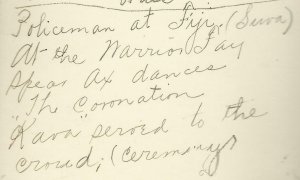 Policeman at Fiji, (Suva)
At the Warrior Day
Spear Ax dances
"The Coronation
Kava" served to the
crowd; (ceremony)